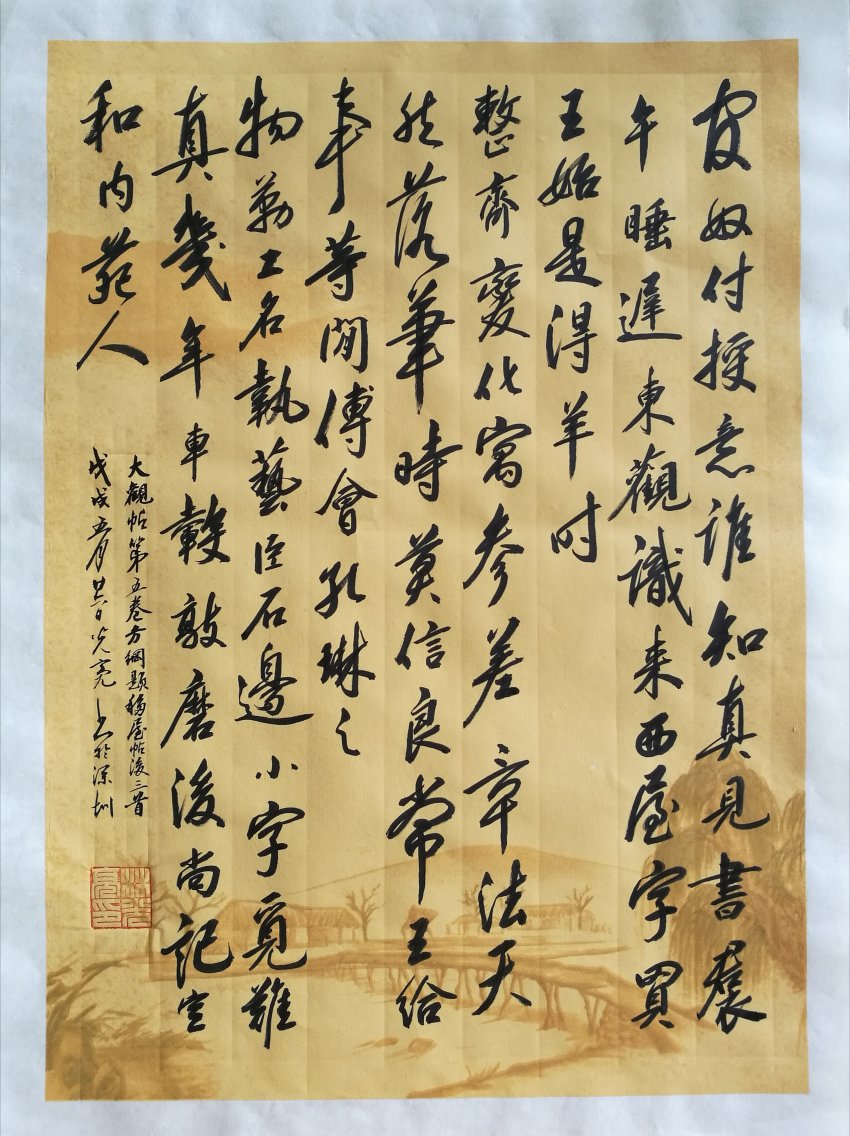 官奴付授意誰知真見書裠
午睡遲東觀識來西屋字買
王始是得羊時
整齊變化寓參差章法天
然落筆時莫信良常王給
事等閒傅會孔琳之
物勒工名執藝臣石邊小字覓難
真幾年車轂敲磨後尚記宣
和內苑人
大觀帖第五卷方綱題移屋帖後三首
戊戌五月廿六日光亮書於深圳